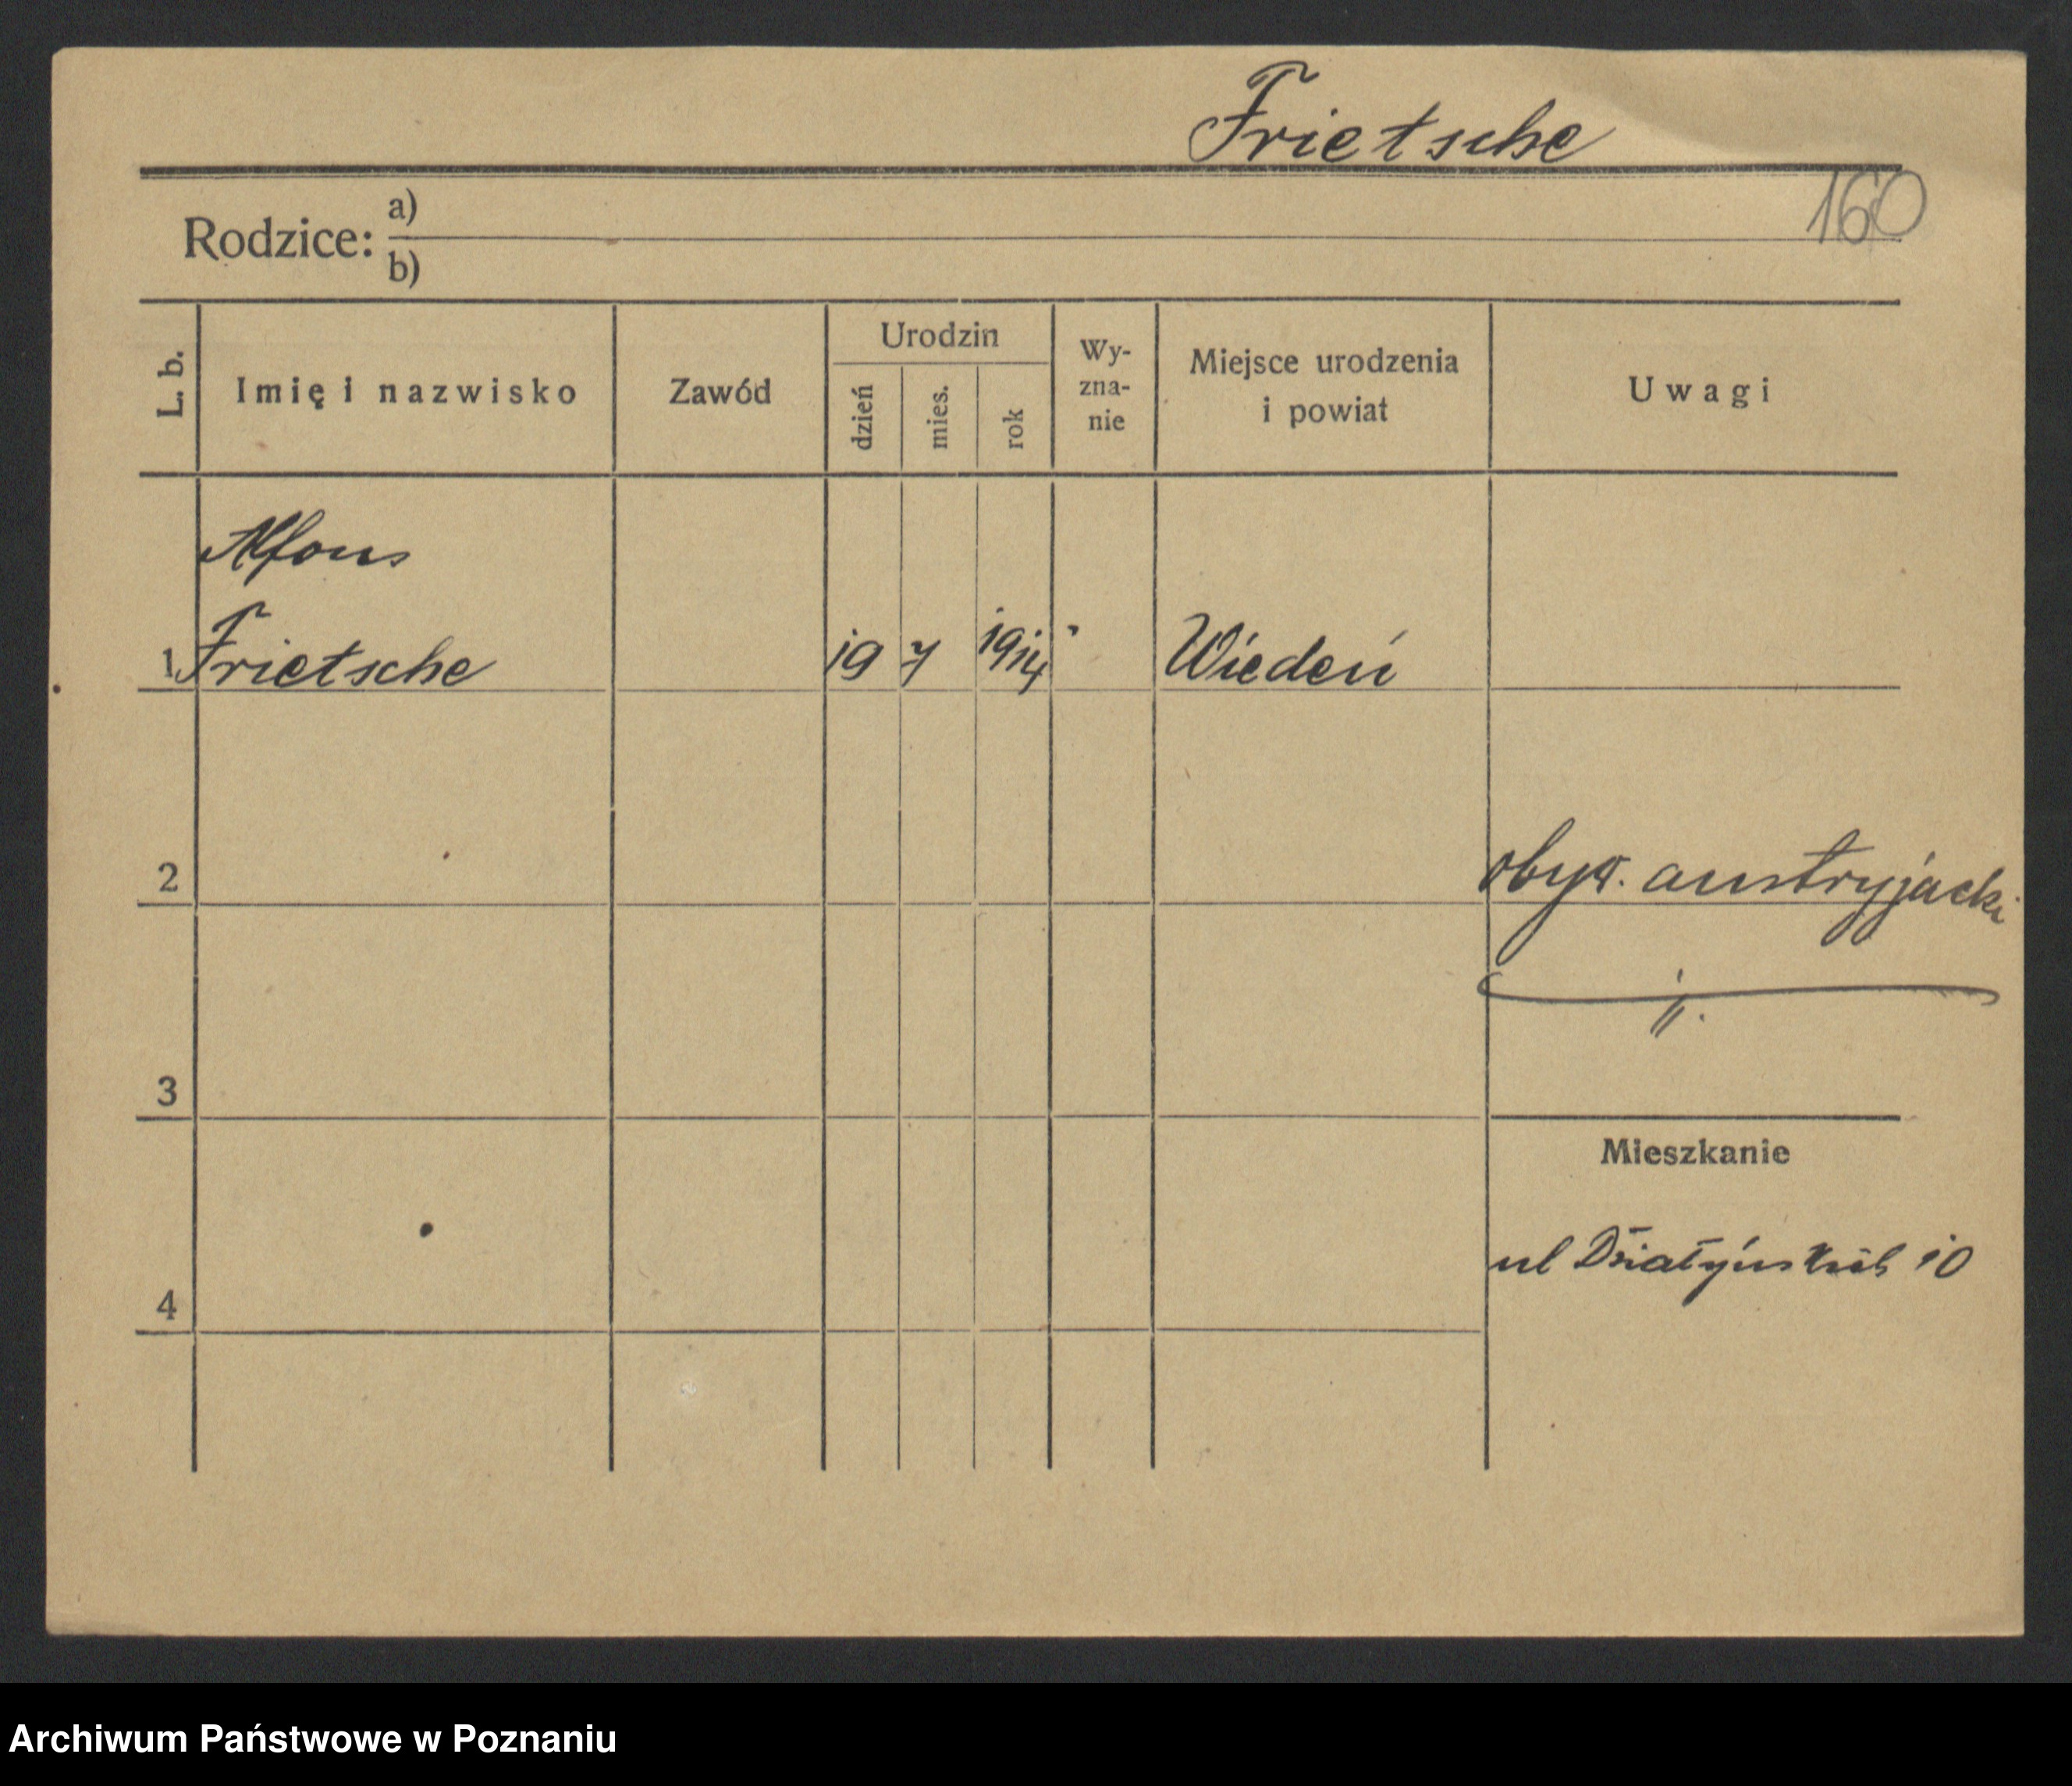 Frietsche
160
Rodzice: a)
b)
L. b.
Imię i nazwisko
Zawód
Urodzin
dzień
mies.
rok
Wy-
zna-
nie
Miejsce urodzenia
i powiat
Uwagi
Alfons
1 Frietsche 19 7 1914 Wiedeń
2
obyw. austryjacki
3
Mieszkanie
ul Działyńskich 10
4
Archiwum Państwowe w Poznaniu